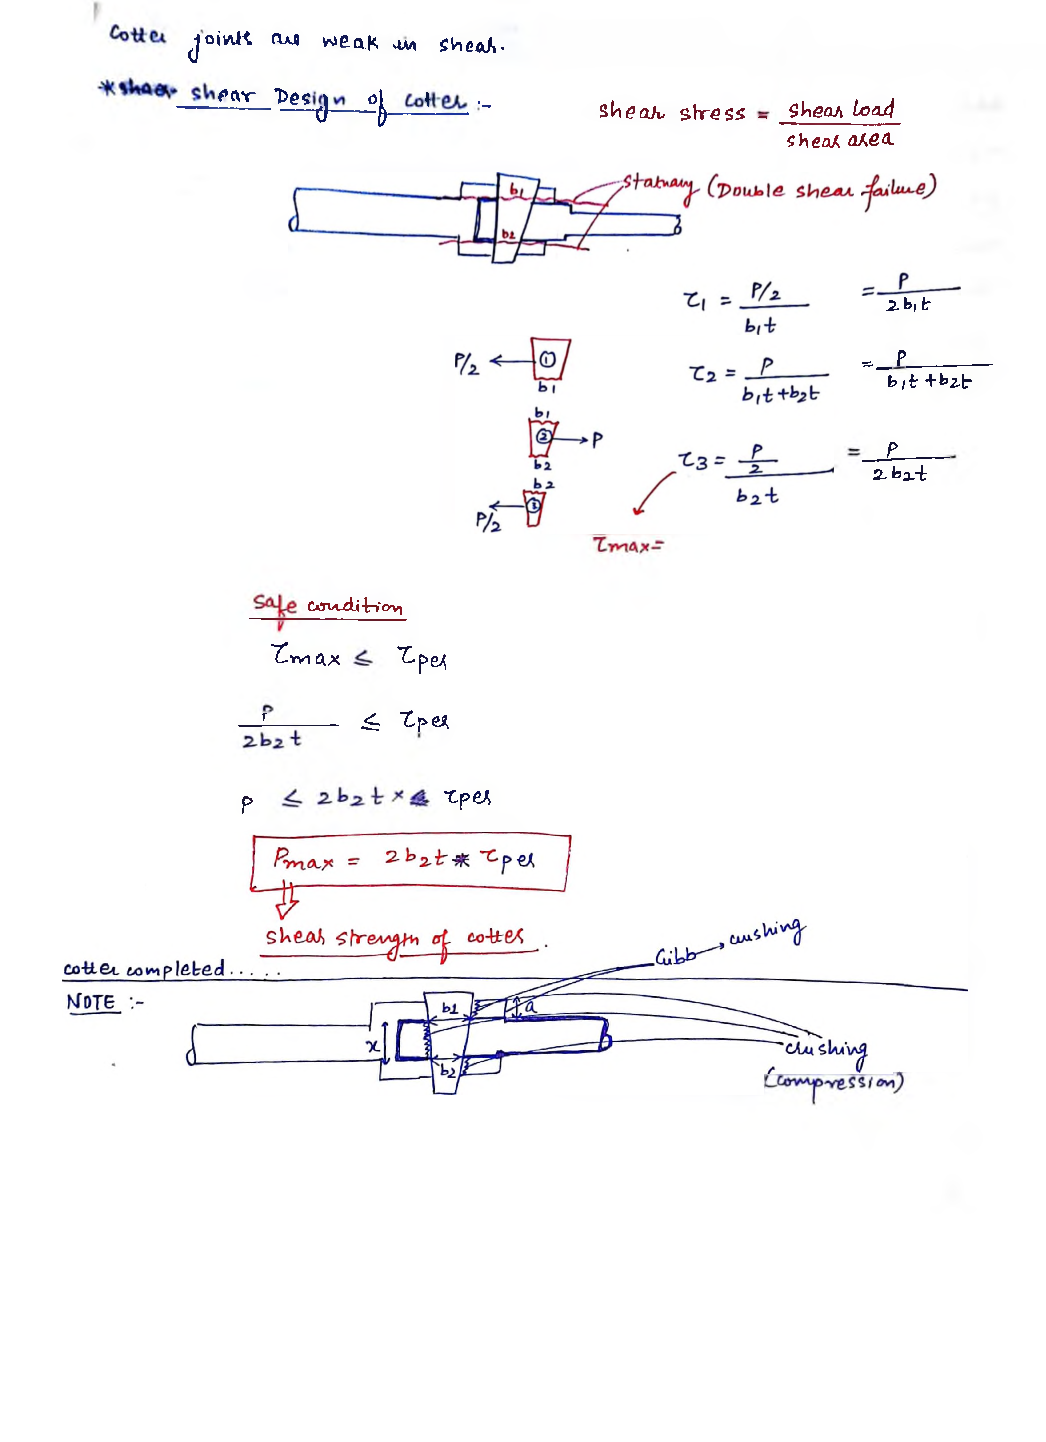 Cotter joints are weak in shear.
* shear Design of cotter :-
shear stress = shear load / shear area
b1
b2
(Double shear failure)
τ1 = P/2 / b1t = P / 2b1t
P/2 ← ① b1
τ2 = P / b1t+b2t = P / b1t+b2t
b1
② → P
b2
τ3 = P/2 / b2t = P / 2b2t
b2
P/2 ← ③
τmax=
Safe condition
τmax ≤ τper
P / 2b2t ≤ τper
P ≤ 2b2t × τper
Pmax = 2b2t * τper
shear strength of cotter.
Gibb → crushing
cotter completed.....
NOTE :-
b1
a
x
b2
crushing
(compression)